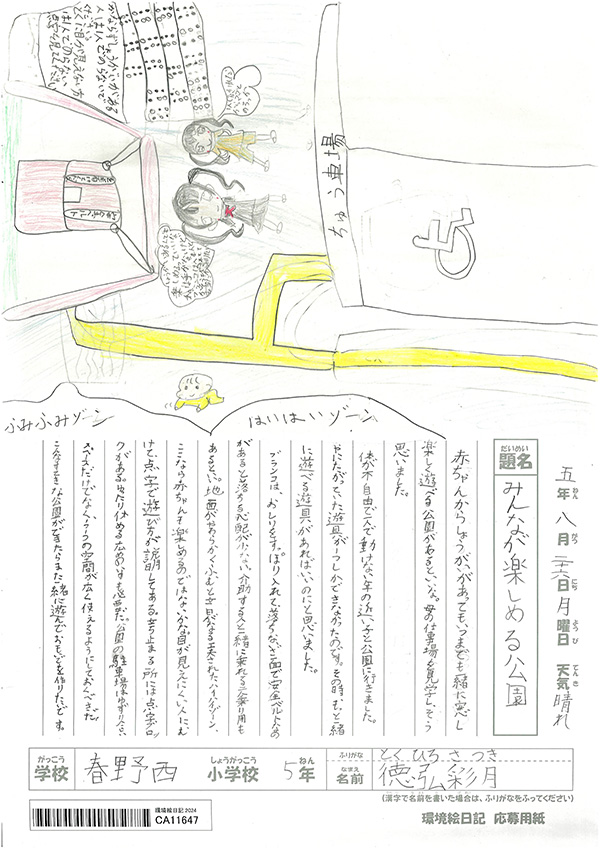 五年 八月 二十六日 月曜日 天気 晴れ
ねん がつ にち ようび てんき
だいめい
題名
みんなが楽しめる公園
赤ちゃんからしょうがいがあってもいつまでも一緒に安心し
楽しく遊べる公園があるといいな。母の仕事場を見学しそう
思いました。
体が不自由で一人で動けない年の近い子と公園に行きました。
やりたがっていた遊具が一つしかできなかったのです。その時もっと一緒
に遊べる遊具があればいいのにと思いました。
ブランコは、おしりをすっぽり入れて落ちない
安全ベルト
があると落ちる心配が少ない。介助する人と一緒に乗れる二人乗り用も
あるといい。地面がやわらかく、ふむと音がなる工夫されたハイハイゾーン。
ここなら赤ちゃんも楽しめるのではないかな。目が見えにくい人にむ
けて、点字で遊び方が説明してある。立ち止まる所には点字ブロッ
クがある。ゆったり休める広めのいすも
公園の駐車場はゆずりあい
スペースだけでなく、一つ一つの空間が広く使えるようにしておくべきだ。
こんなすてきな公園ができたらまた一緒に遊んでおもいでを作りたいです。
ちゅう車場
ふみふみゾーン
はいはいゾーン
がっこう
学校
春野西
しょうがっこう
小学校
5年
ねん
ふりがな
とくひろ さつき
なまえ
名前
徳弘彩月
(漢字で名前を書いた場合は、ふりがなをふってください)
環境絵日記 2024
CA11647
環境絵日記 応募用紙